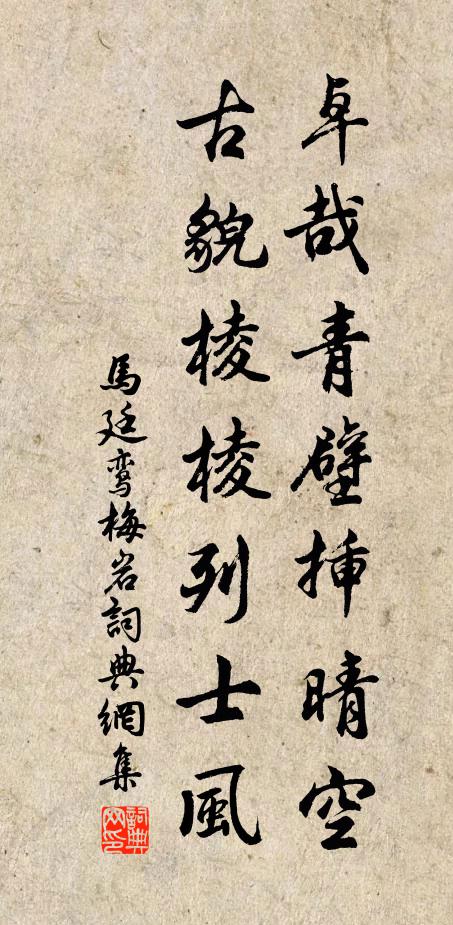 卓哉青壁挿晴空
古貌棱棱列士風
馬廷鸾梅岩詞典網集
詞典网印